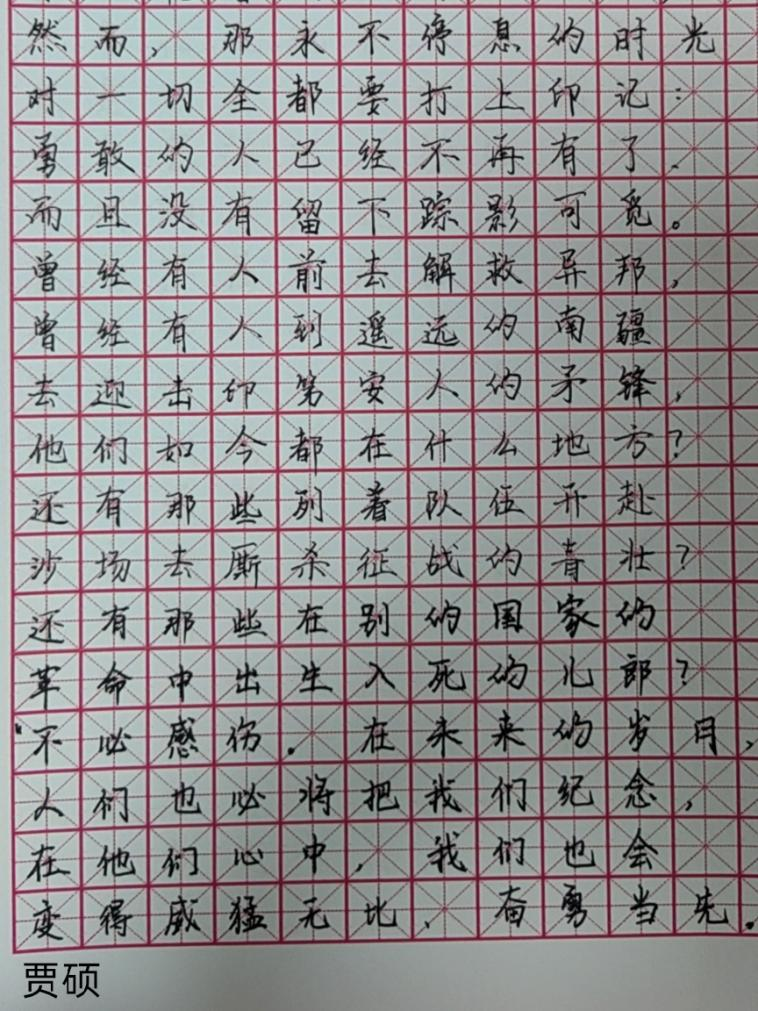 然而，那永不停息的时光
对一切全都要打上印记：
勇敢的人已经不再有了、
而且没有留下踪影可觅。
曾经有人前去解救异邦，
曾经有人到遥远的南疆
去迎击印第安人的矛锋，
他们如今都在什么地方？
还有那些列着队伍开赴
沙场去厮杀征战的青壮？
还有那些在别的国家的
革命中出生入死的儿郎？
“不必感伤。在未来的岁月，
人们也必将把我们纪念，
在他们心中，我们也会
变得威猛无比、奋勇当先。
贾硕